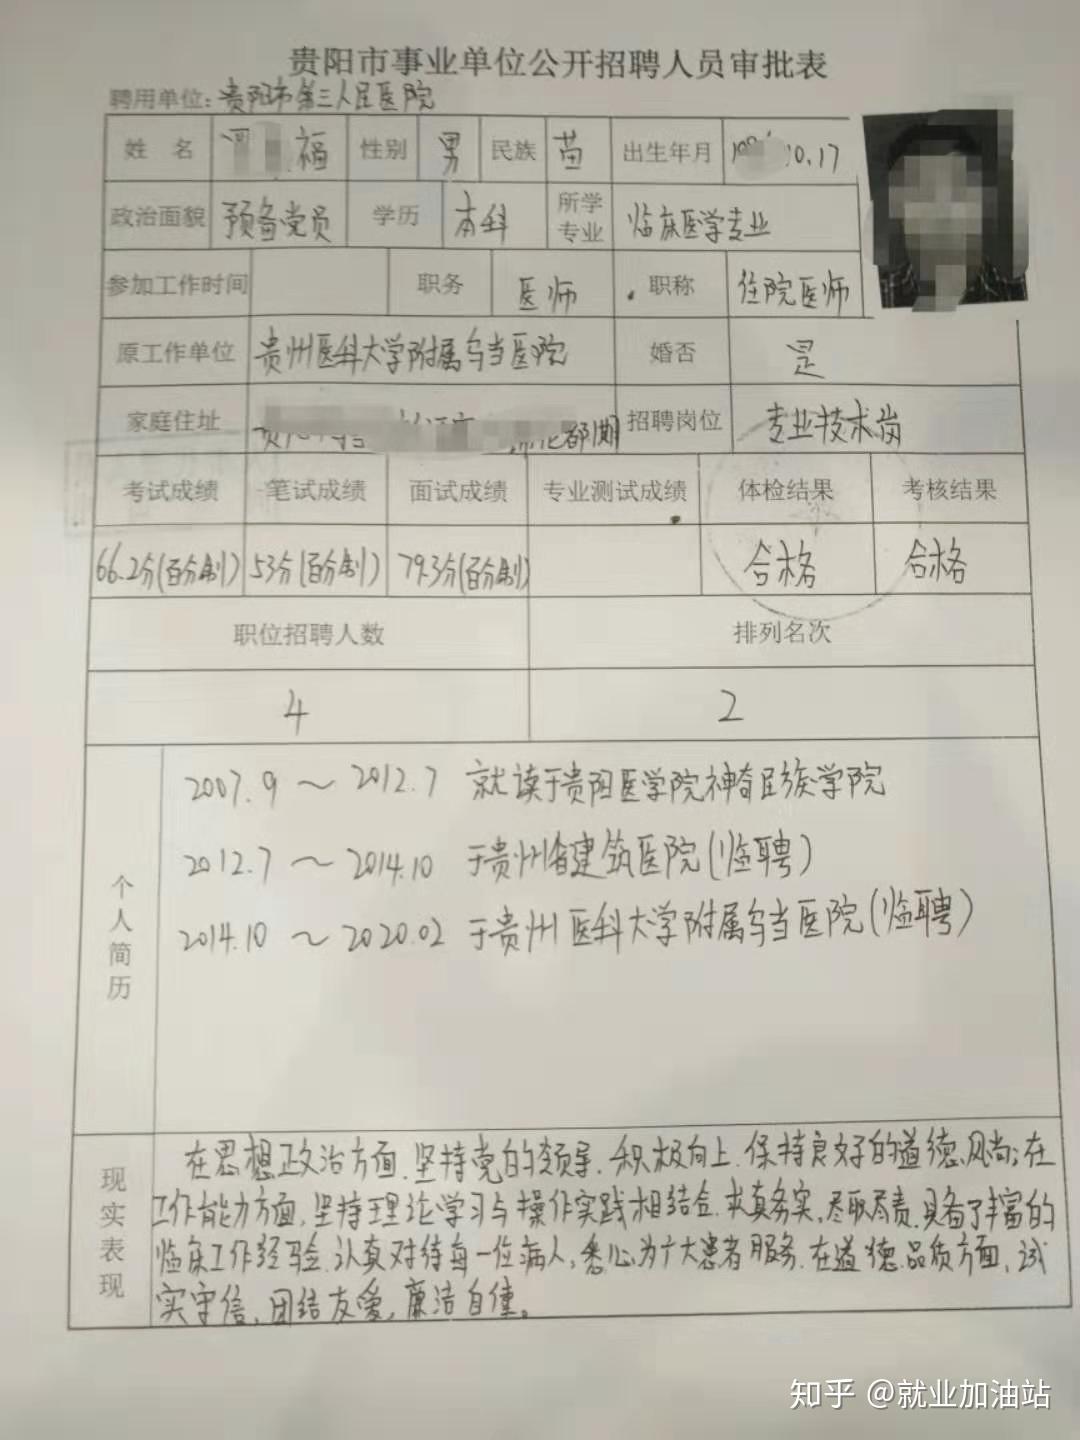 贵阳市事业单位公开招聘人员审批表
聘用单位：贵阳市第三人民医院
姓 名 福 性别 男 民族 苗 出生年月 10.17
政治面貌 预备党员 学历 本科 所学专业 临床医学专业
参加工作时间 职务 医师 职称 住院医师
原工作单位 贵州医科大学附属乌当医院 婚否 是
家庭住址 招聘岗位 专业技术岗
考试成绩 笔试成绩 面试成绩 专业测试成绩 体检结果 考核结果
66.2分(百分制) 53分(百分制) 79.3分(百分制) 合格 合格
职位招聘人数 排列名次
4 2
个人简历
2007.9 ～ 2012.7 就读于贵阳医学院神奇民族学院
2012.7 ～ 2014.10 于贵州省建筑医院(临聘)
2014.10 ～ 2020.02 于贵州医科大学附属乌当医院(临聘)
现实表现
在思想政治方面,坚持党的领导,积极向上,保持良好的道德风尚;在
工作能力方面,坚持理论学习与操作实践相结合,求真务实,尽职尽责,具备了丰富的
临床工作经验,认真对待每一位病人,悉心为广大患者服务,在道德品质方面,诚
实守信,团结友爱,廉洁自律。
知乎 @就业加油站